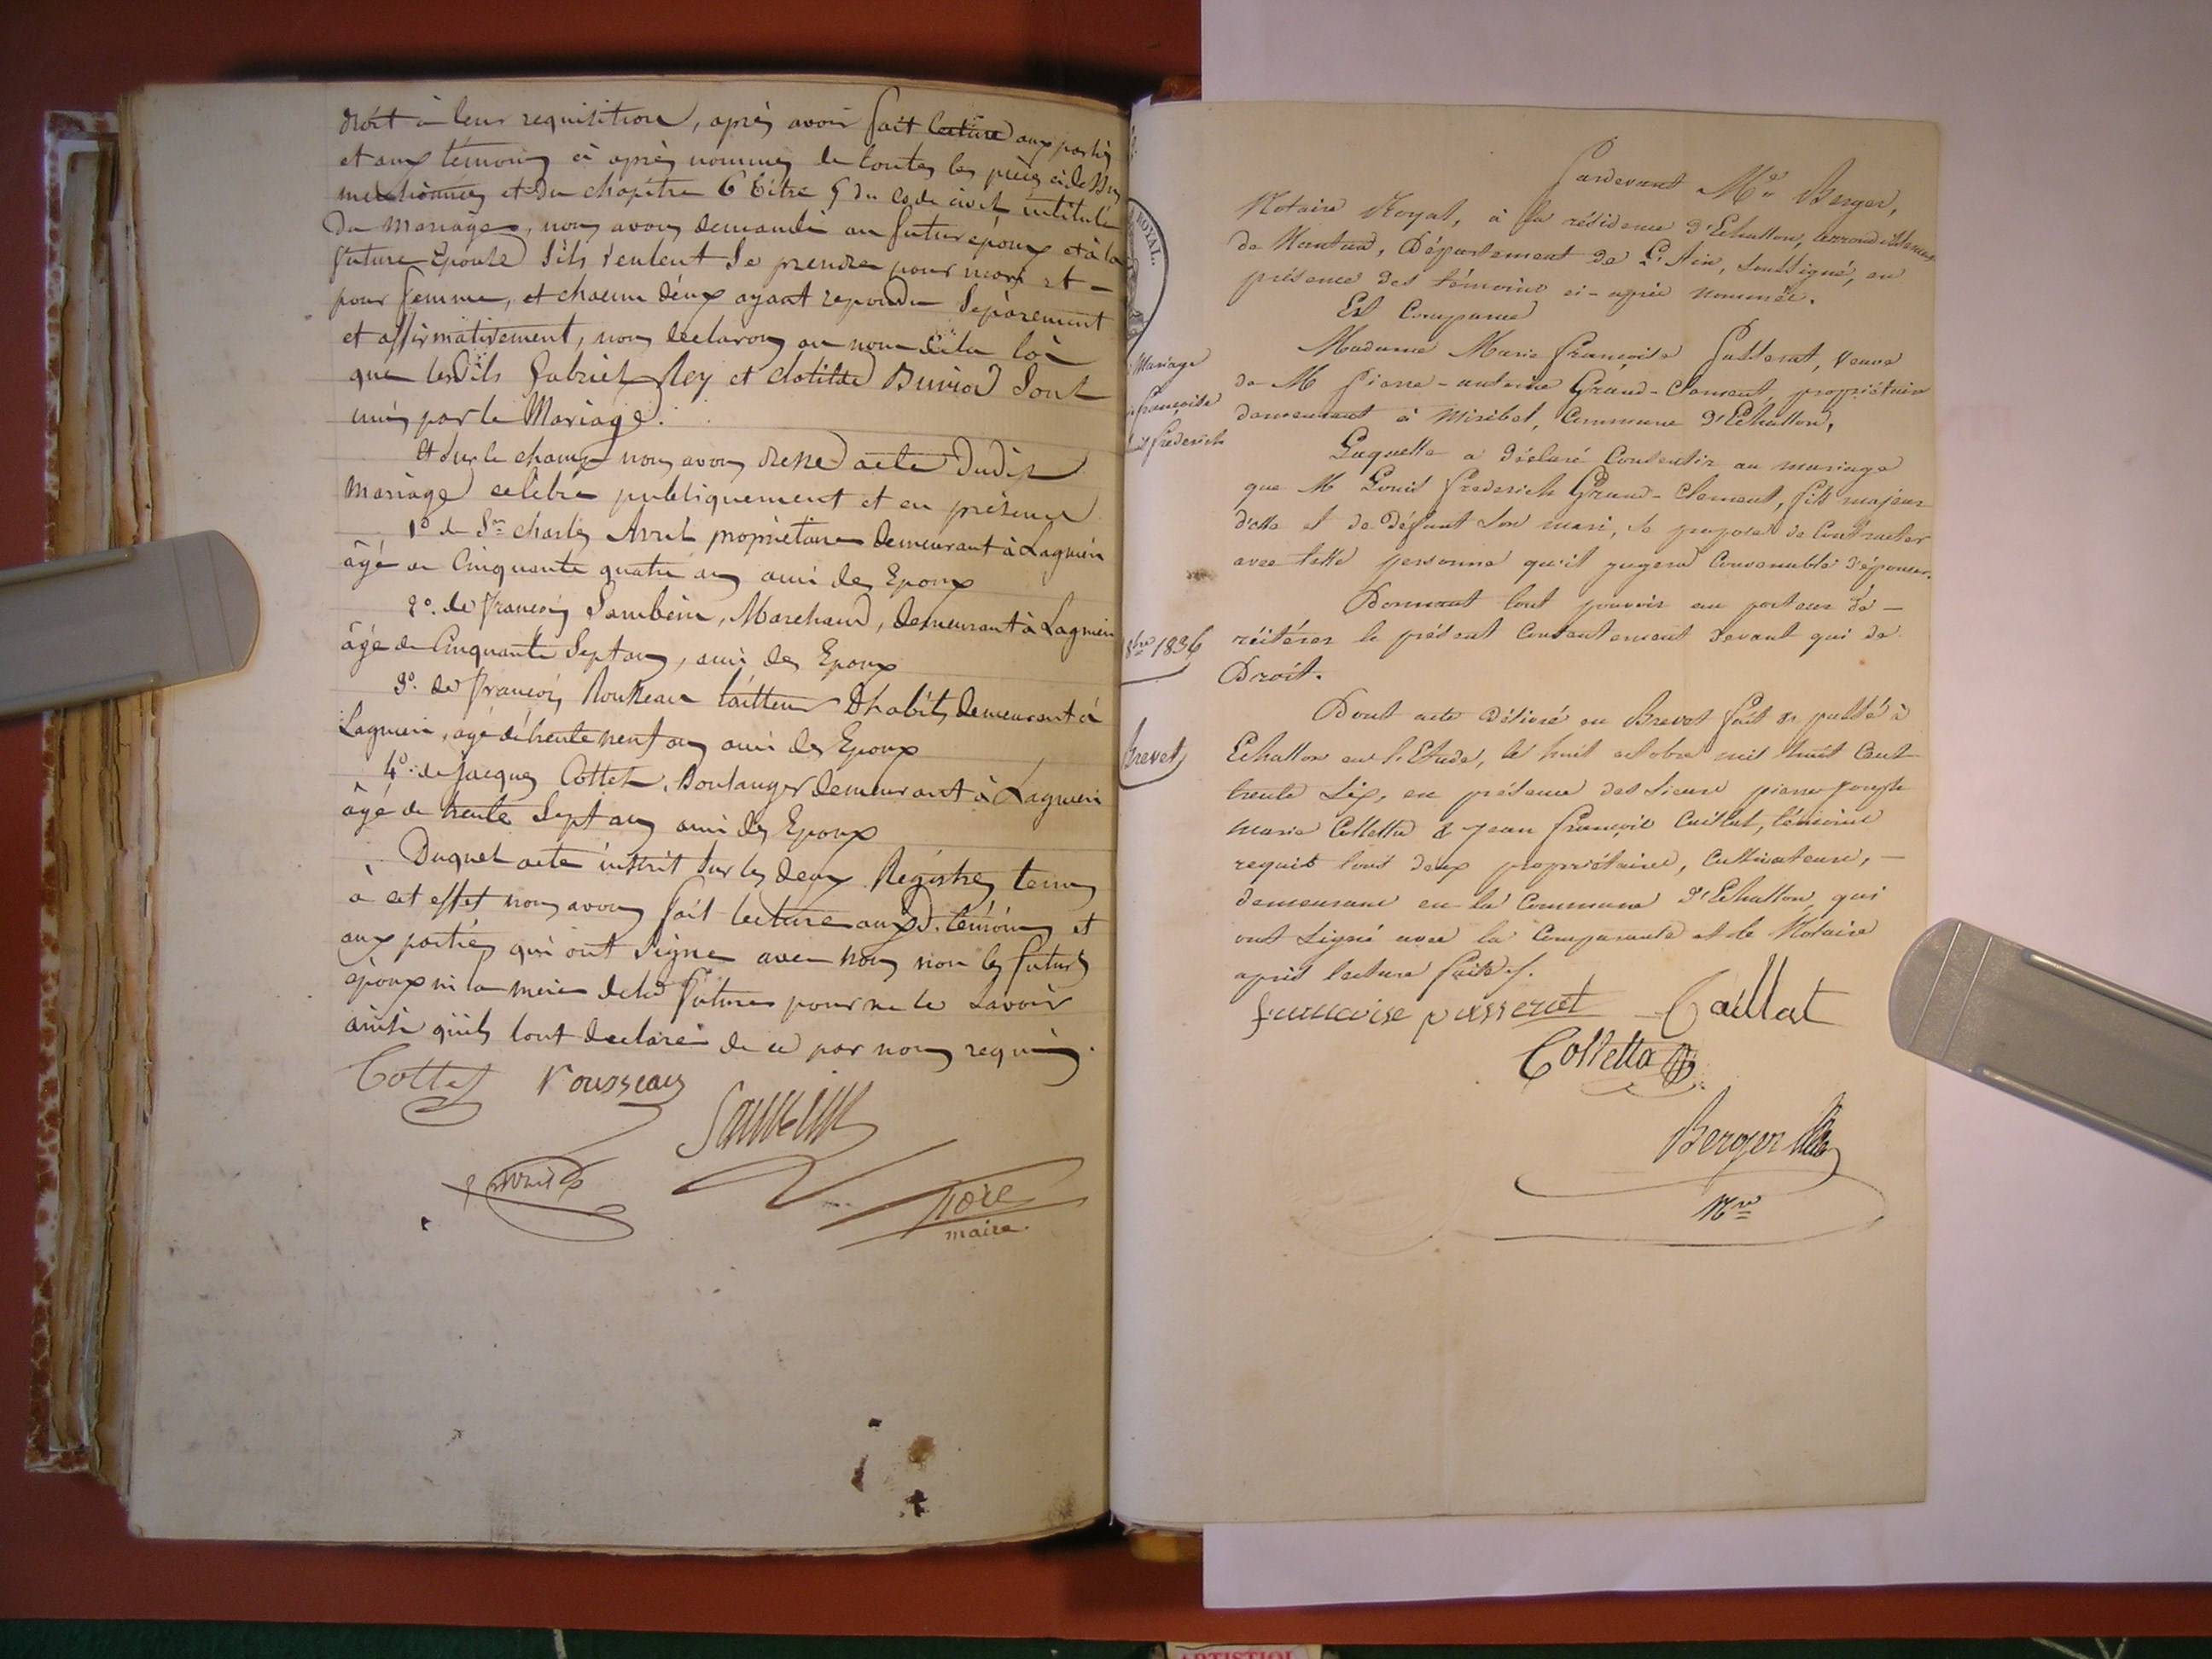 droit à leur requisition, après avoir fait lecture aux parties
et aux témoins ci après nommés de toutes les pièces ci dessus
mentionnées et du chapitre 6 titre 5 du code civil intitulé
Du Mariage, nous avons demandé au futur époux et à la
future Epouse s'ils veulent se prendre pour mari et –
pour femme, et chacun d'eux ayant repondu Séparement
et affirmativement, nous declarons au nom de la loi
que lesdits Gabriel Rey et Clotilde sont
unis par le Mariage.
Et sur le champ nous avons dressé acte dudit
Mariage celebré publiquement et en présence
1º de Sr Charles Avril propriétaire demeurant à Lagnieu
âgé de Cinquante quatre ans ami des Epoux
2º. de François Sambein, Marchand, demeurant à Lagnieu
âgé de Cinquante Sept ans, ami des Epoux
3º. de François Rousseau tailleur D'habits, demeurant à
Lagnieu, agé de trente neuf ans ami des Epoux
4º. de Jacques Cottet, Boulanger demeurant à Lagnieu
âgé de trente Sept ans ami des Epoux
Duquel acte inscrit sur les deux Régistres tenus
à cet effet nous avons fait lecture auxd. témoins et
aux parties qui ont signé avec nous non les futurs
époux ni la mère de la future pour ne le savoir
ainsi qu'ils l'ont declaré de ce par nous requis.
Cottet Rousseau
Sambein
Avril
maire
ROYAL.
Mariage
françoise
frederich
8bre 1836
Brevet
Pardevant Me Berger,
Notaire Royal, à la résidence d'Echallon, arrondissement
de Nantua, Département de L'Ain, soussigné, en
présence des témoins ci-après nommés.
Est Comparue
Madame Marie françoise Passerat, veuve
de M Pierre-antoine Grand-Clement, propriétaire
demeurant à Miribel, Commune d'Echallon,
Laquelle a déclaré Consentir au mariage
que M Louis frederich Grand-Clement, fils majeur
d'elle et de défunt son mari, se propose de Contracter
avec telle personne qu'il jugera Convenable d'épouser.
Donnant tout pouvoir au porteur de –
réitérer le présent Consentement devant qui de
Droit.
Dont acte délivré en Brevet fait & passé à
Echallon en l'Etude, le huit octobre mil huit Cent
trente six, en présence des sieurs pierre joseph
marie Colletta & jean françois Caillat, témoins
requis tous deux propriétaires, Cultivateurs, –
demeurant en la Commune d'Echallon, qui
ont signé avec la Comparante et le Notaire
après lecture faite.
francoise passerat Caillat
Colletta
Berger
Nre